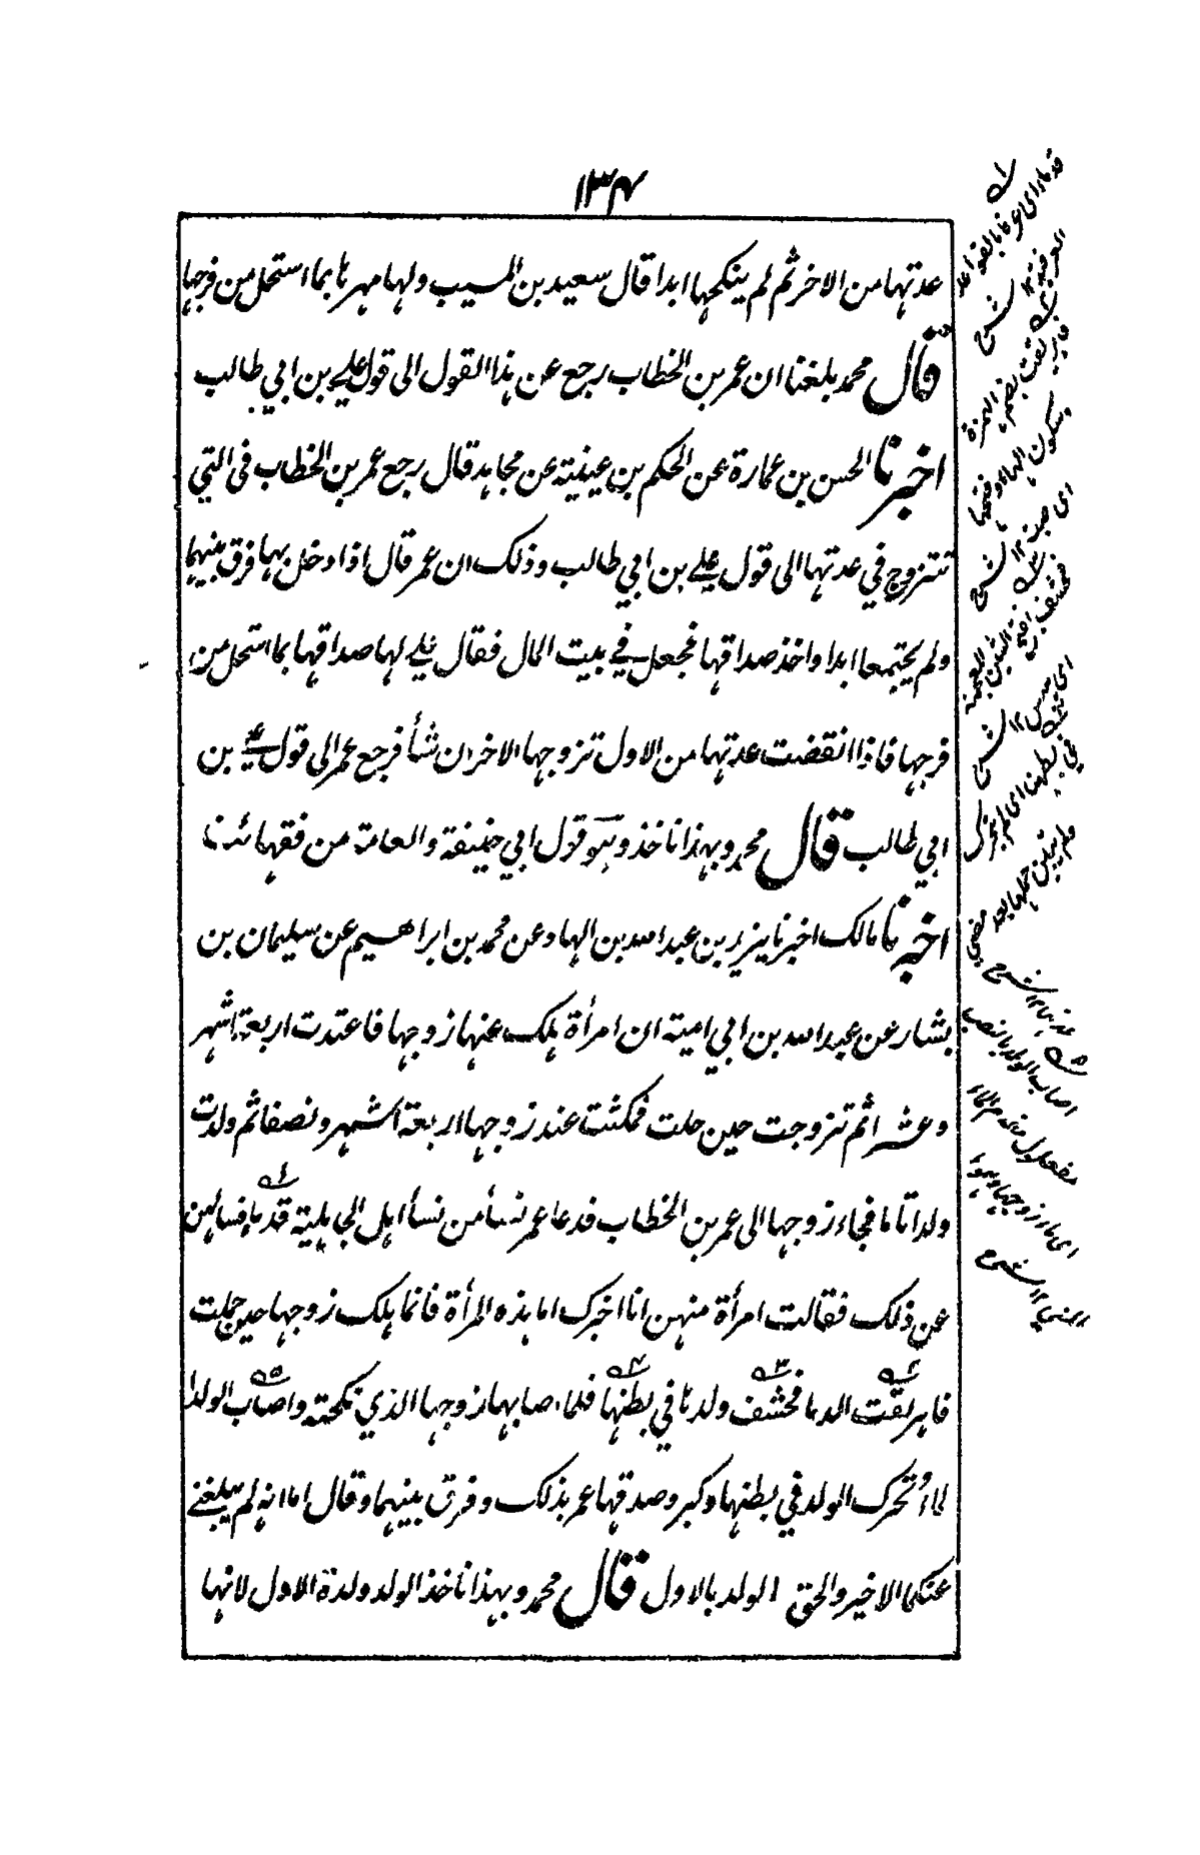 ١٣٤
عدتها من الاخر ثم لم ينكحها ابدا قال سعيد بن المسيب ولها مهرها بما استحل من فرجها
قال محمد بلغنا ان عمر بن الخطاب رجع عن هذا القول الى قول علي بن ابي طالب
اخبرنا الحسن بن عمارة عن الحكم بن عيينة عن مجاهد قال رجع عمر بن الخطاب في التي
تتزوج في عدتها الى قول علي بن ابي طالب وذلك ان عمر قال اذا دخل بها فرق بينهما
ولم يجتمعا ابدا واخذ صداقها فجعل في بيت المال فقال علي لها صداقها بما استحل من
فرجها فاذا انقضت عدتها من الاول تزوجها الاخر ان شأ فرجع عمر الى قول علي بن
ابي طالب قال محمد وبهذا ناخذ وهو قول ابي حنيفة والعامة من فقهائنا
اخبرنا مالك اخبرنا يزيد بن عبد الله بن الهاد عن محمد بن ابراهيم عن سليمان بن
يشار عن عبد الله بن ابي امية ان امرأة هلك عنها زوجها فاعتدت اربعة اشهر
وعشرا ثم تزوجت حين حلت فمكثت عند زوجها اربعة اشهر ونصفا ثم ولدت
ولدا تاما فجاء زوجها الى عمر بن الخطاب فدعا عمر نسأ من نسأ اهل الجاهلية قدماء فسالهن
عن ذلك فقالت امرأة منهن انا اخبرك اما هذه المرأة فانما هلك زوجها حين حملت
فاهريقت الدما فحشف ولدها في بطنها فلما اصابها زوجها الذي نكحته واصاب الولد
الماء تحرك الولد في بطنها وكبر وصدقها عمر بذلك وفرق بينهما وقال اما انه لم يبلغني
عنكما الا خير والحق الولد بالاول قال محمد وبهذا ناخذ الولد ولدة الاول لانها
قدماء اى
العرفية ١٢ شرح
بضم الهمزة
وسكون الهاء وفتحها
اى صبت ١٢ شرح
الشين المعجمة
اى يبس ١٢ شرح
في بطنها اى لم يتحرك
شرح
اصاب الولد بالنصب
مفعول مقدم الماء
اى ماء زوجها وهو
المني ١٢ شرح